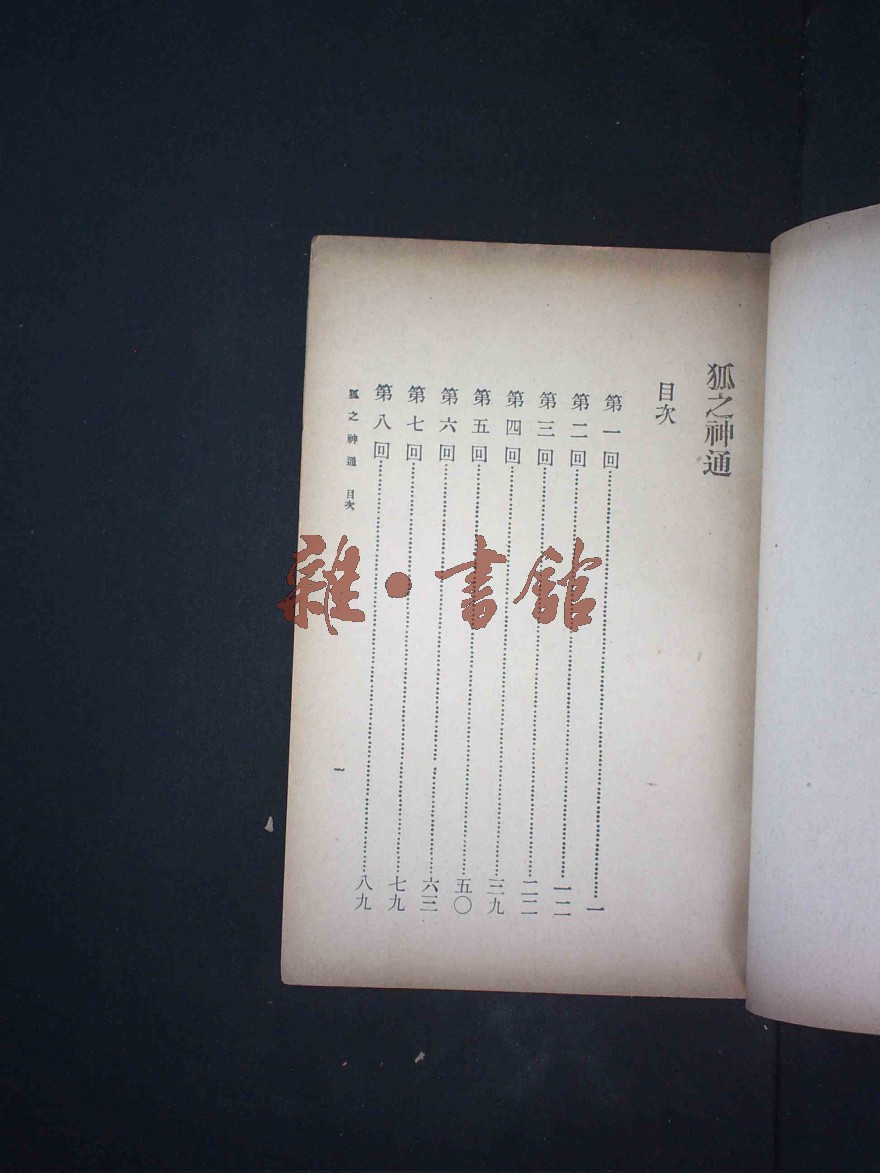 狐之神通
目次
第一回……………………一
第二回……………………一二
第三回……………………二二
第四回……………………三九
第五回……………………五〇
第六回……………………六三
第七回……………………七九
第八回……………………八九
狐之神通 目次
一
雜·書館